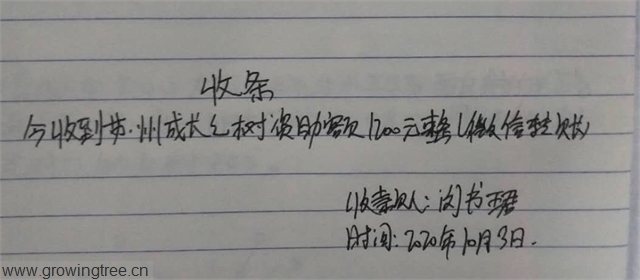 收条
今收到苏州成长之树资助额1200元整（微信转账）
收款人：闵书珺
时间：2020年10月3日.
www.growingtree.cn